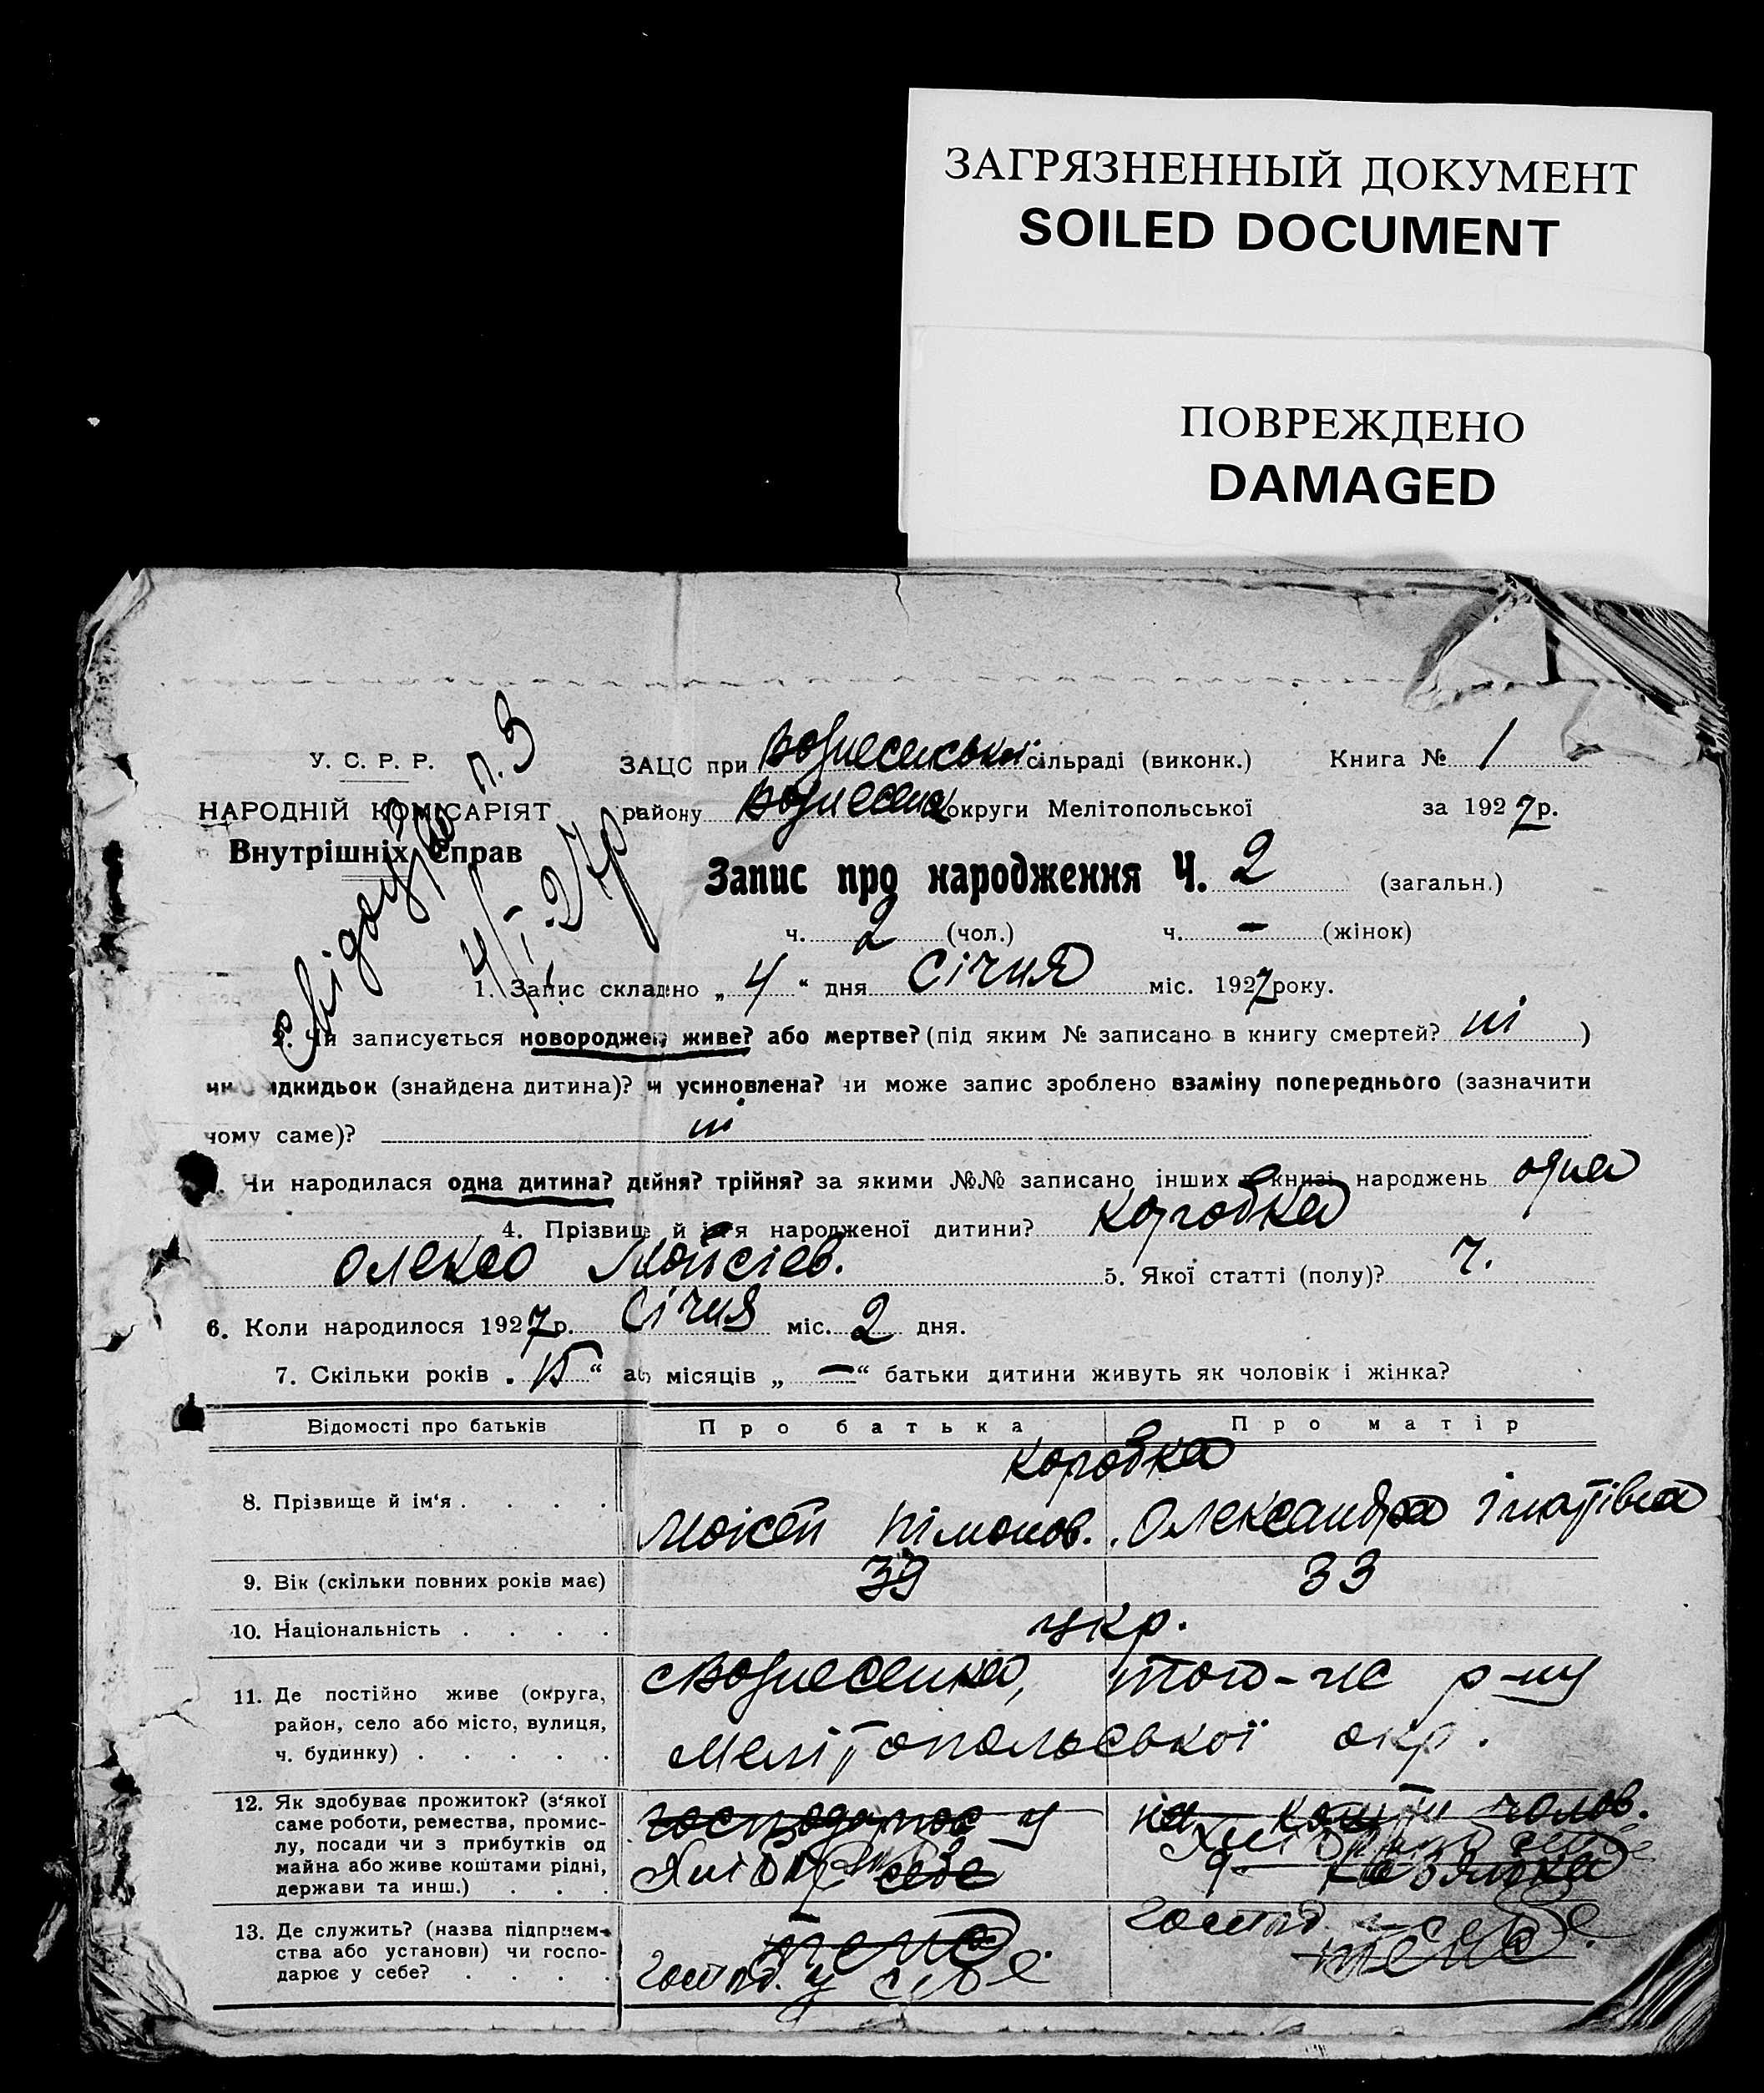 ЗАГРЯЗНЕННЫЙ ДОКУМЕНТ
SOILED DOCUMENT
ПОВРЕЖДЕНО
DAMAGED
У. С. Р. Р.
НАРОДНІЙ КОМІСАРІЯТ
Внутрішніх Справ
п. 3
4/I-27р
ЗАЦС при Вознесенській сільраді (виконк.) Книга № 1
району Вознесенс округи Мелітопольської за 1927р.
Запис про народження Ч. 2 (загальн.)
ч. 2 (чол.) ч. – (жінок)
1. Запис складено „ 4 “ дня Січня міс. 1927 року.
2. Чи записується новороджен живе? або мертве? (під яким № записано в книгу смертей? ні )
чи ідкидьок (знайдена дитина)? чи усиновлена? чи може запис зроблено взаміну попереднього (зазначити
чому саме)? ні
Чи народилася одна дитина? двійня? трійня? за якими №№ записано інших в книзі народжень одна
4. Прізвище й ім'я народженої дитини? Коробка
Олексо Мойсіев. 5. Якої статті (полу)? ч.
6. Коли народилося 1927р. Січня міс. 2 дня.
7. Скільки років „ 15 “ або місяців „ – “ батьки дитини живуть як чоловік і жінка?
Відомості про батьків Про батька Про матір
Коробка
8. Прізвище й ім'я . . . . Мойсей Пімонов. Олександра Ігнатівна
9. Вік (скільки повних років має) 39 33
10. Національність . . . . укр.
11. Де постійно живе (округа, район, село або місто, вулиця, ч. будинку) . . . . .
с Вознесенка, того-же р-ну
Мелітопольської окр.
12. Як здобуває прожиток? (з'якої саме роботи, ремества, промислу, посади чи з прибутків од майна або живе коштами рідні, держави та инш.) . . .
господарює у себе
на кошти чолов.
13. Де служить? (назва підприємства або установи) чи господарює у себе? . . . .
теж.
господ. у себе
господ. у себе
теж.